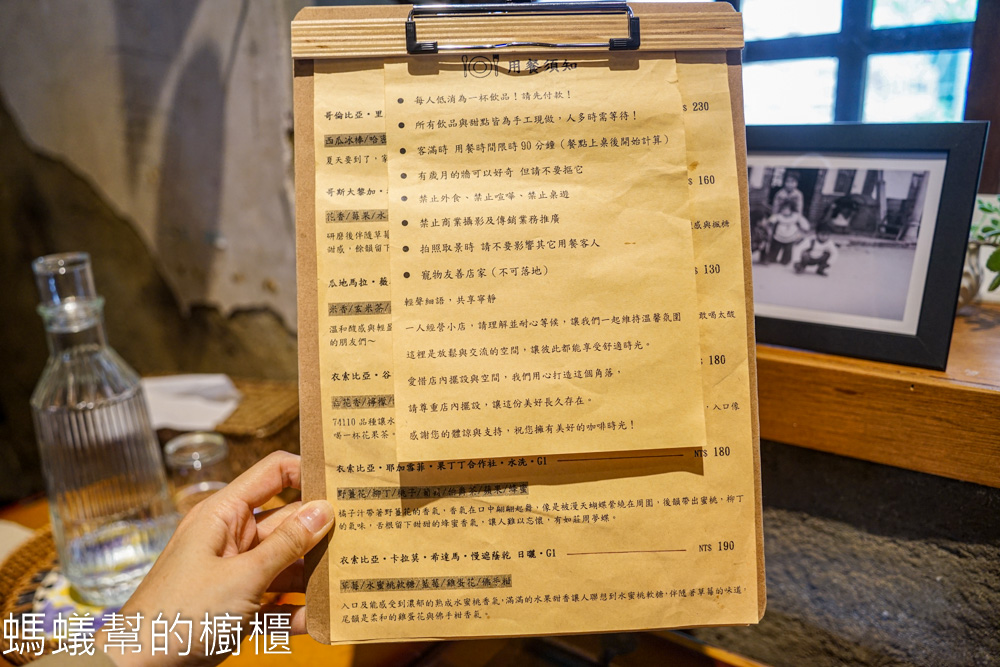 用餐須知
● 每人低消為一杯飲品！請先付款！
● 所有飲品與甜點皆為手工現做，人多時需等待！
● 客滿時 用餐時間限時90分鐘（餐點上桌後開始計算）
● 有歲月的牆可以好奇 但請不要摳它
禁止外食、禁止喧嘩、禁止桌遊
● 禁止商業攝影及傳銷業務推廣
● 拍照取景時 請不要影響其它用餐客人
● 寵物友善店家（不可落地）
輕聲細語，共享寧靜
一人經營小店，請理解並耐心等候，讓我們一起維持溫馨氛圍
這裡是放鬆與交流的空間，讓彼此都能享受舒適時光。
愛惜店內擺設與空間，我們用心打造這個角落，
請尊重店內擺設，讓這份美好長久存在。
感謝您的體諒與支持，祝您擁有美好的咖啡時光！
哥倫比亞・里
230
西瓜冰棒/哈蜜
夏天要到了，家
哥斯大黎加・
160
花香/莓果/水
研磨後伴隨草莓
感與楓糖
甜感，餘韻留下
瓜地馬拉・薇
130
米香/玄米茶/
溫和酸感與輕盈
敢喝太酸
的朋友們～
衣索比亞・谷
180
白花香/檸檬/
74110 品種讓水
，入口像
喝一杯花果茶。
衣索比亞・耶加雪菲・果丁丁合作社・水洗・G1 NT$ 180
野薑花/柳丁/桃子/葡萄/
橘子汁帶著野薑花的香氣，香氣在口中翩翩起舞，像是被漫天蝴蝶縈繞在周圍，後韻帶出蜜桃，柳丁
的氣味，舌根留下甜甜的蜂蜜香氣，讓人難以忘懷，有如莊周夢蝶。
衣索比亞・卡拉莫・希達馬・慢遮蔭乾 日曬・G1 NT$ 190
草莓/水蜜桃軟糖/藍莓/雞蛋花/佛手柑
入口及能感受到濃郁的熟成水蜜桃香氣，滿滿的水果甜香讓人聯想到水蜜桃軟糖，伴隨著草莓的味道，
尾韻是柔和的雞蛋花與佛手柑香氣。
螞蟻幫的櫥櫃